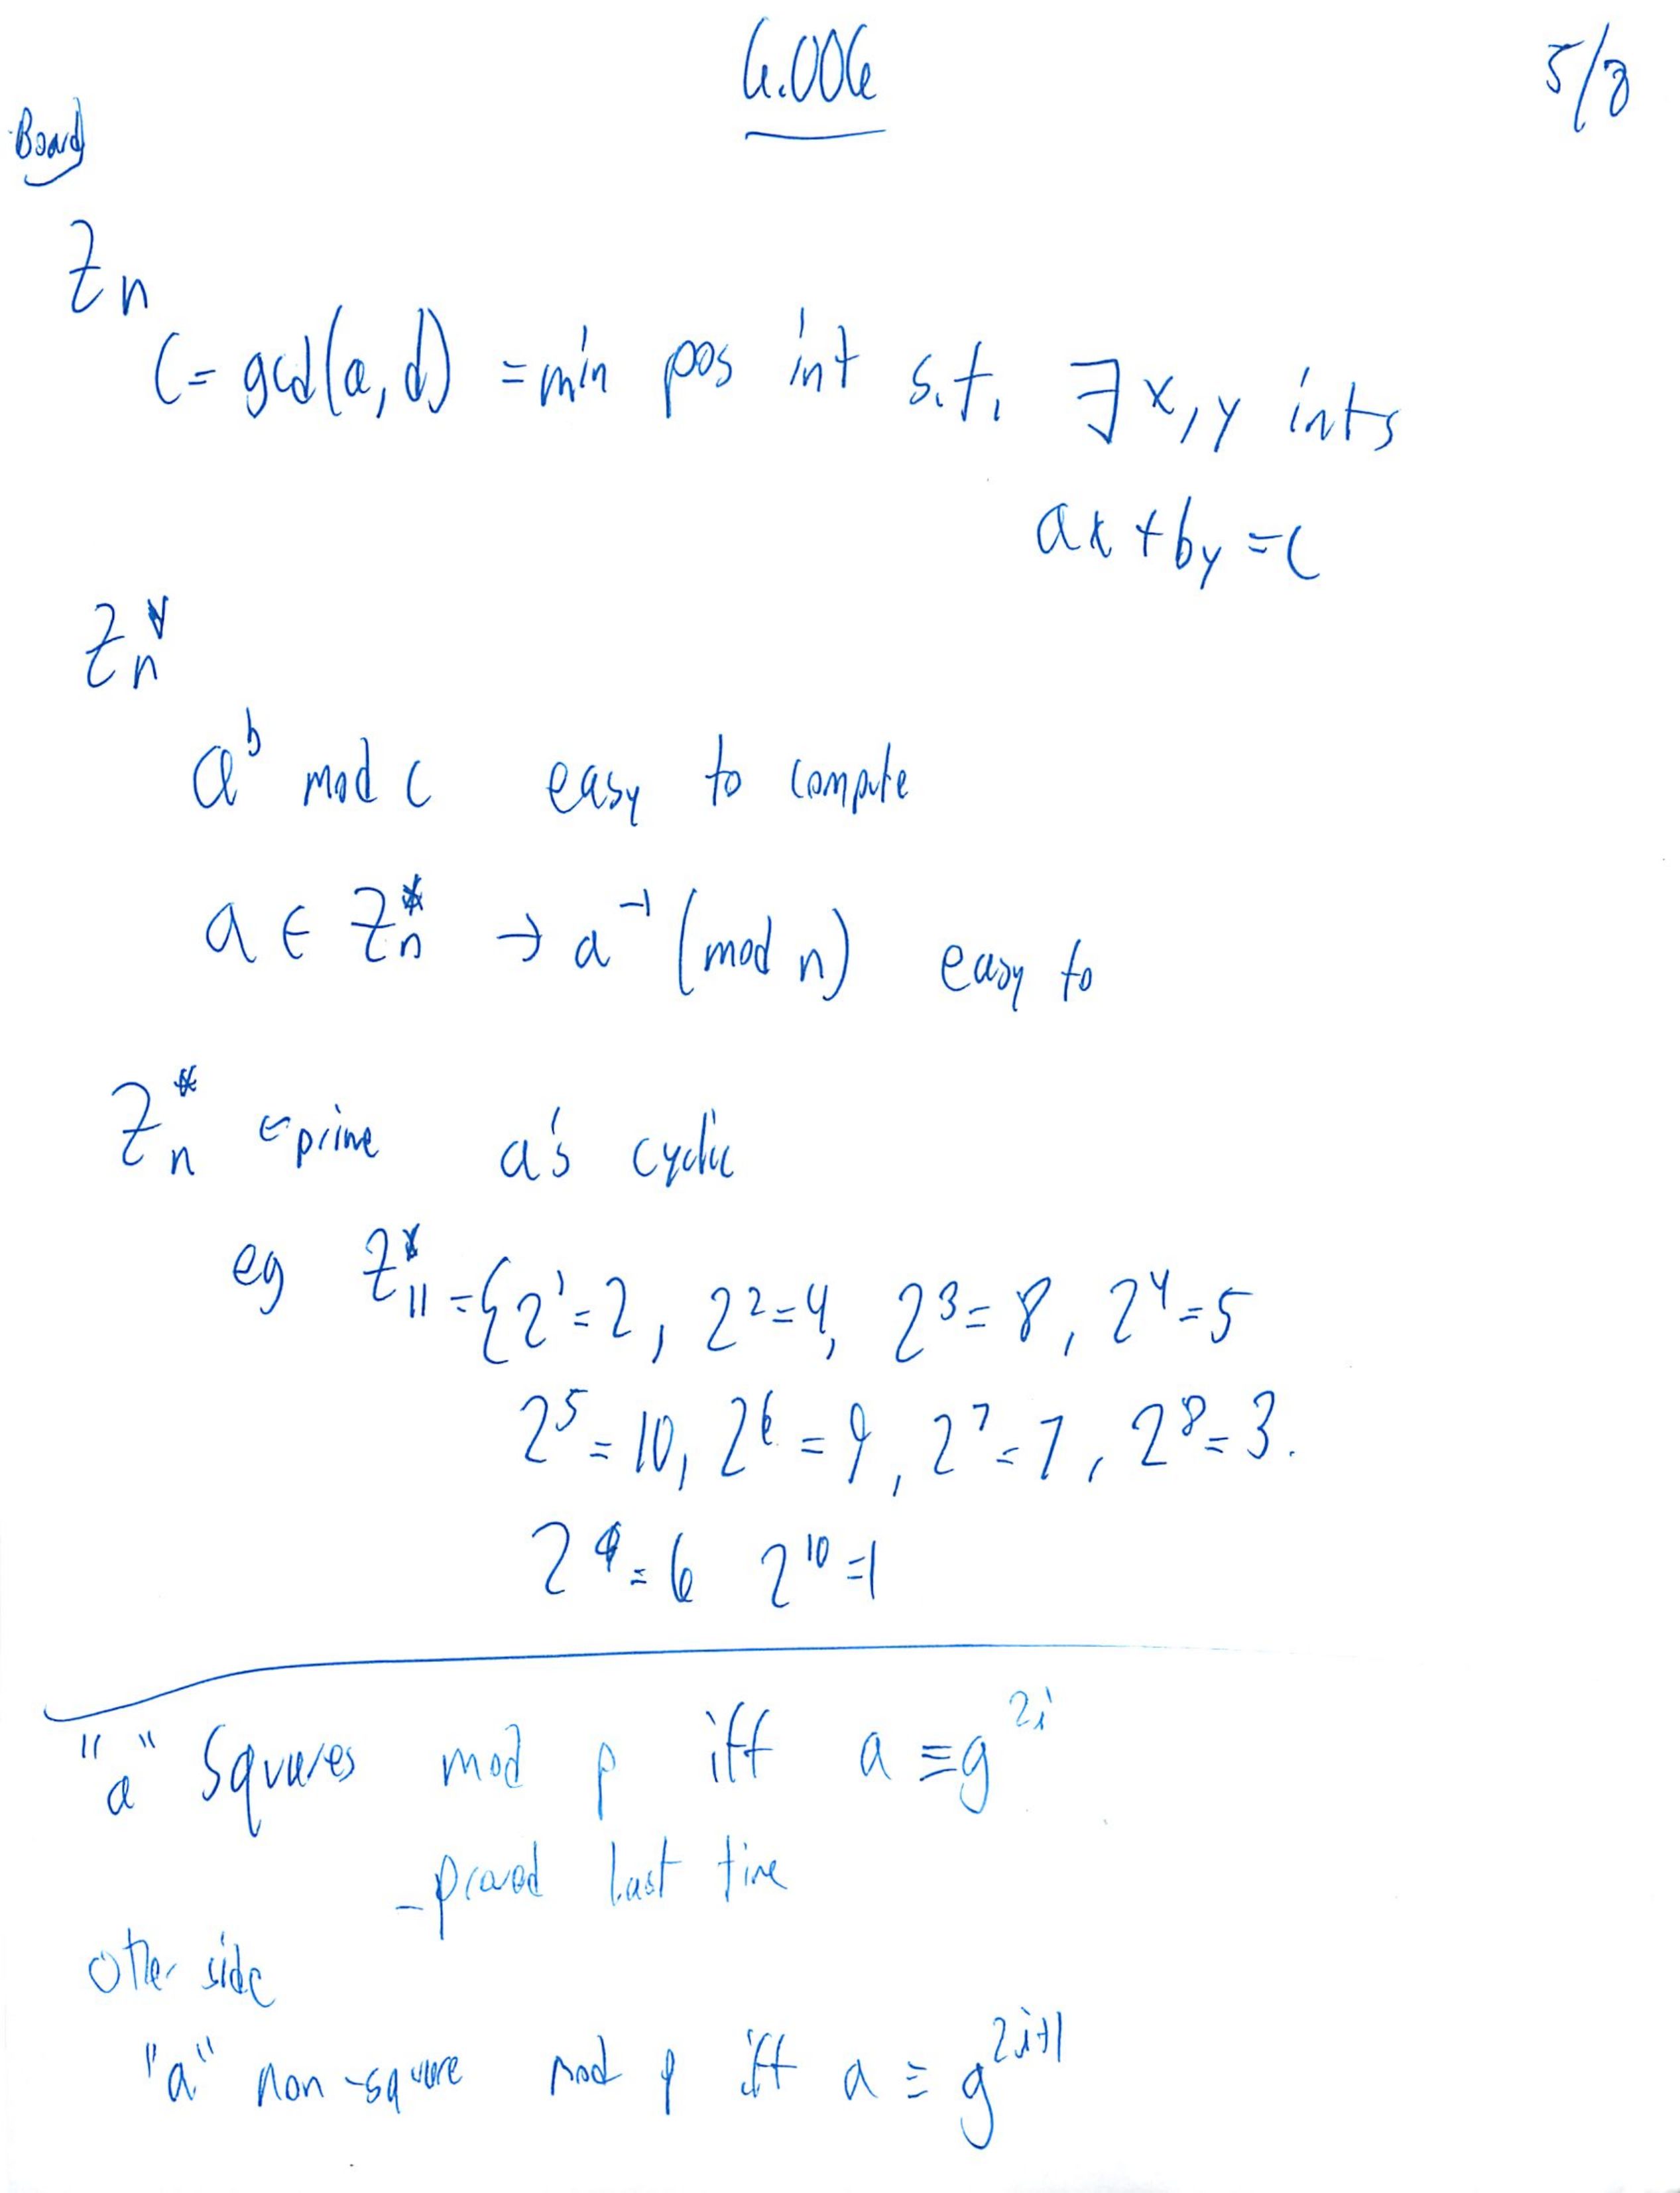 6.006
5/8
Board
Zn
C = gcd(a, d) = min pos int s.t. ∃ x, y ints
ax + by = c
Zn*
a^b mod c easy to compute
a ∈ Zn* → a^-1 (mod n) easy to
Zn* ← prime a's cyclic
eg Z11* = {2^1 = 2, 2^2 = 4, 2^3 = 8, 2^4 = 5
2^5 = 10, 2^6 = 9, 2^7 = 7, 2^8 = 3.
2^9 = 6 2^10 = 1
"a" Squares mod p iff a ≡ g^2i
- proved last time
Other side
"a" non-square mod p iff a ≡ g^2i+1